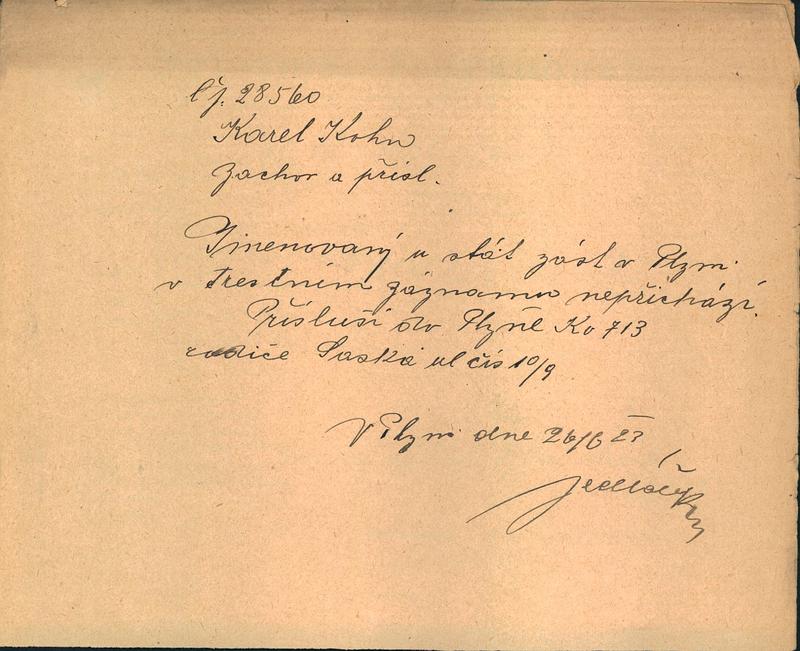 čj. 28560
Karel Kohn
zachov a přísl.
Jmenovaný u stát zást v Plzni
v trestním záznamu nepřichází.
Přísluší do Plzně Ko 713
rodiče Saská ul čís 10/9
V Plzni dne 26/6 23